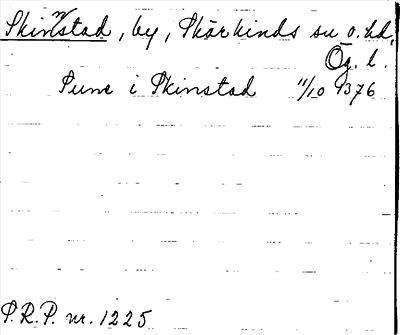 Skinnstad, by, Skärkinds sn o. hd,
Ög. l.
Sune i Skinstad 11/10 1376
P.R.P. nr. 1225